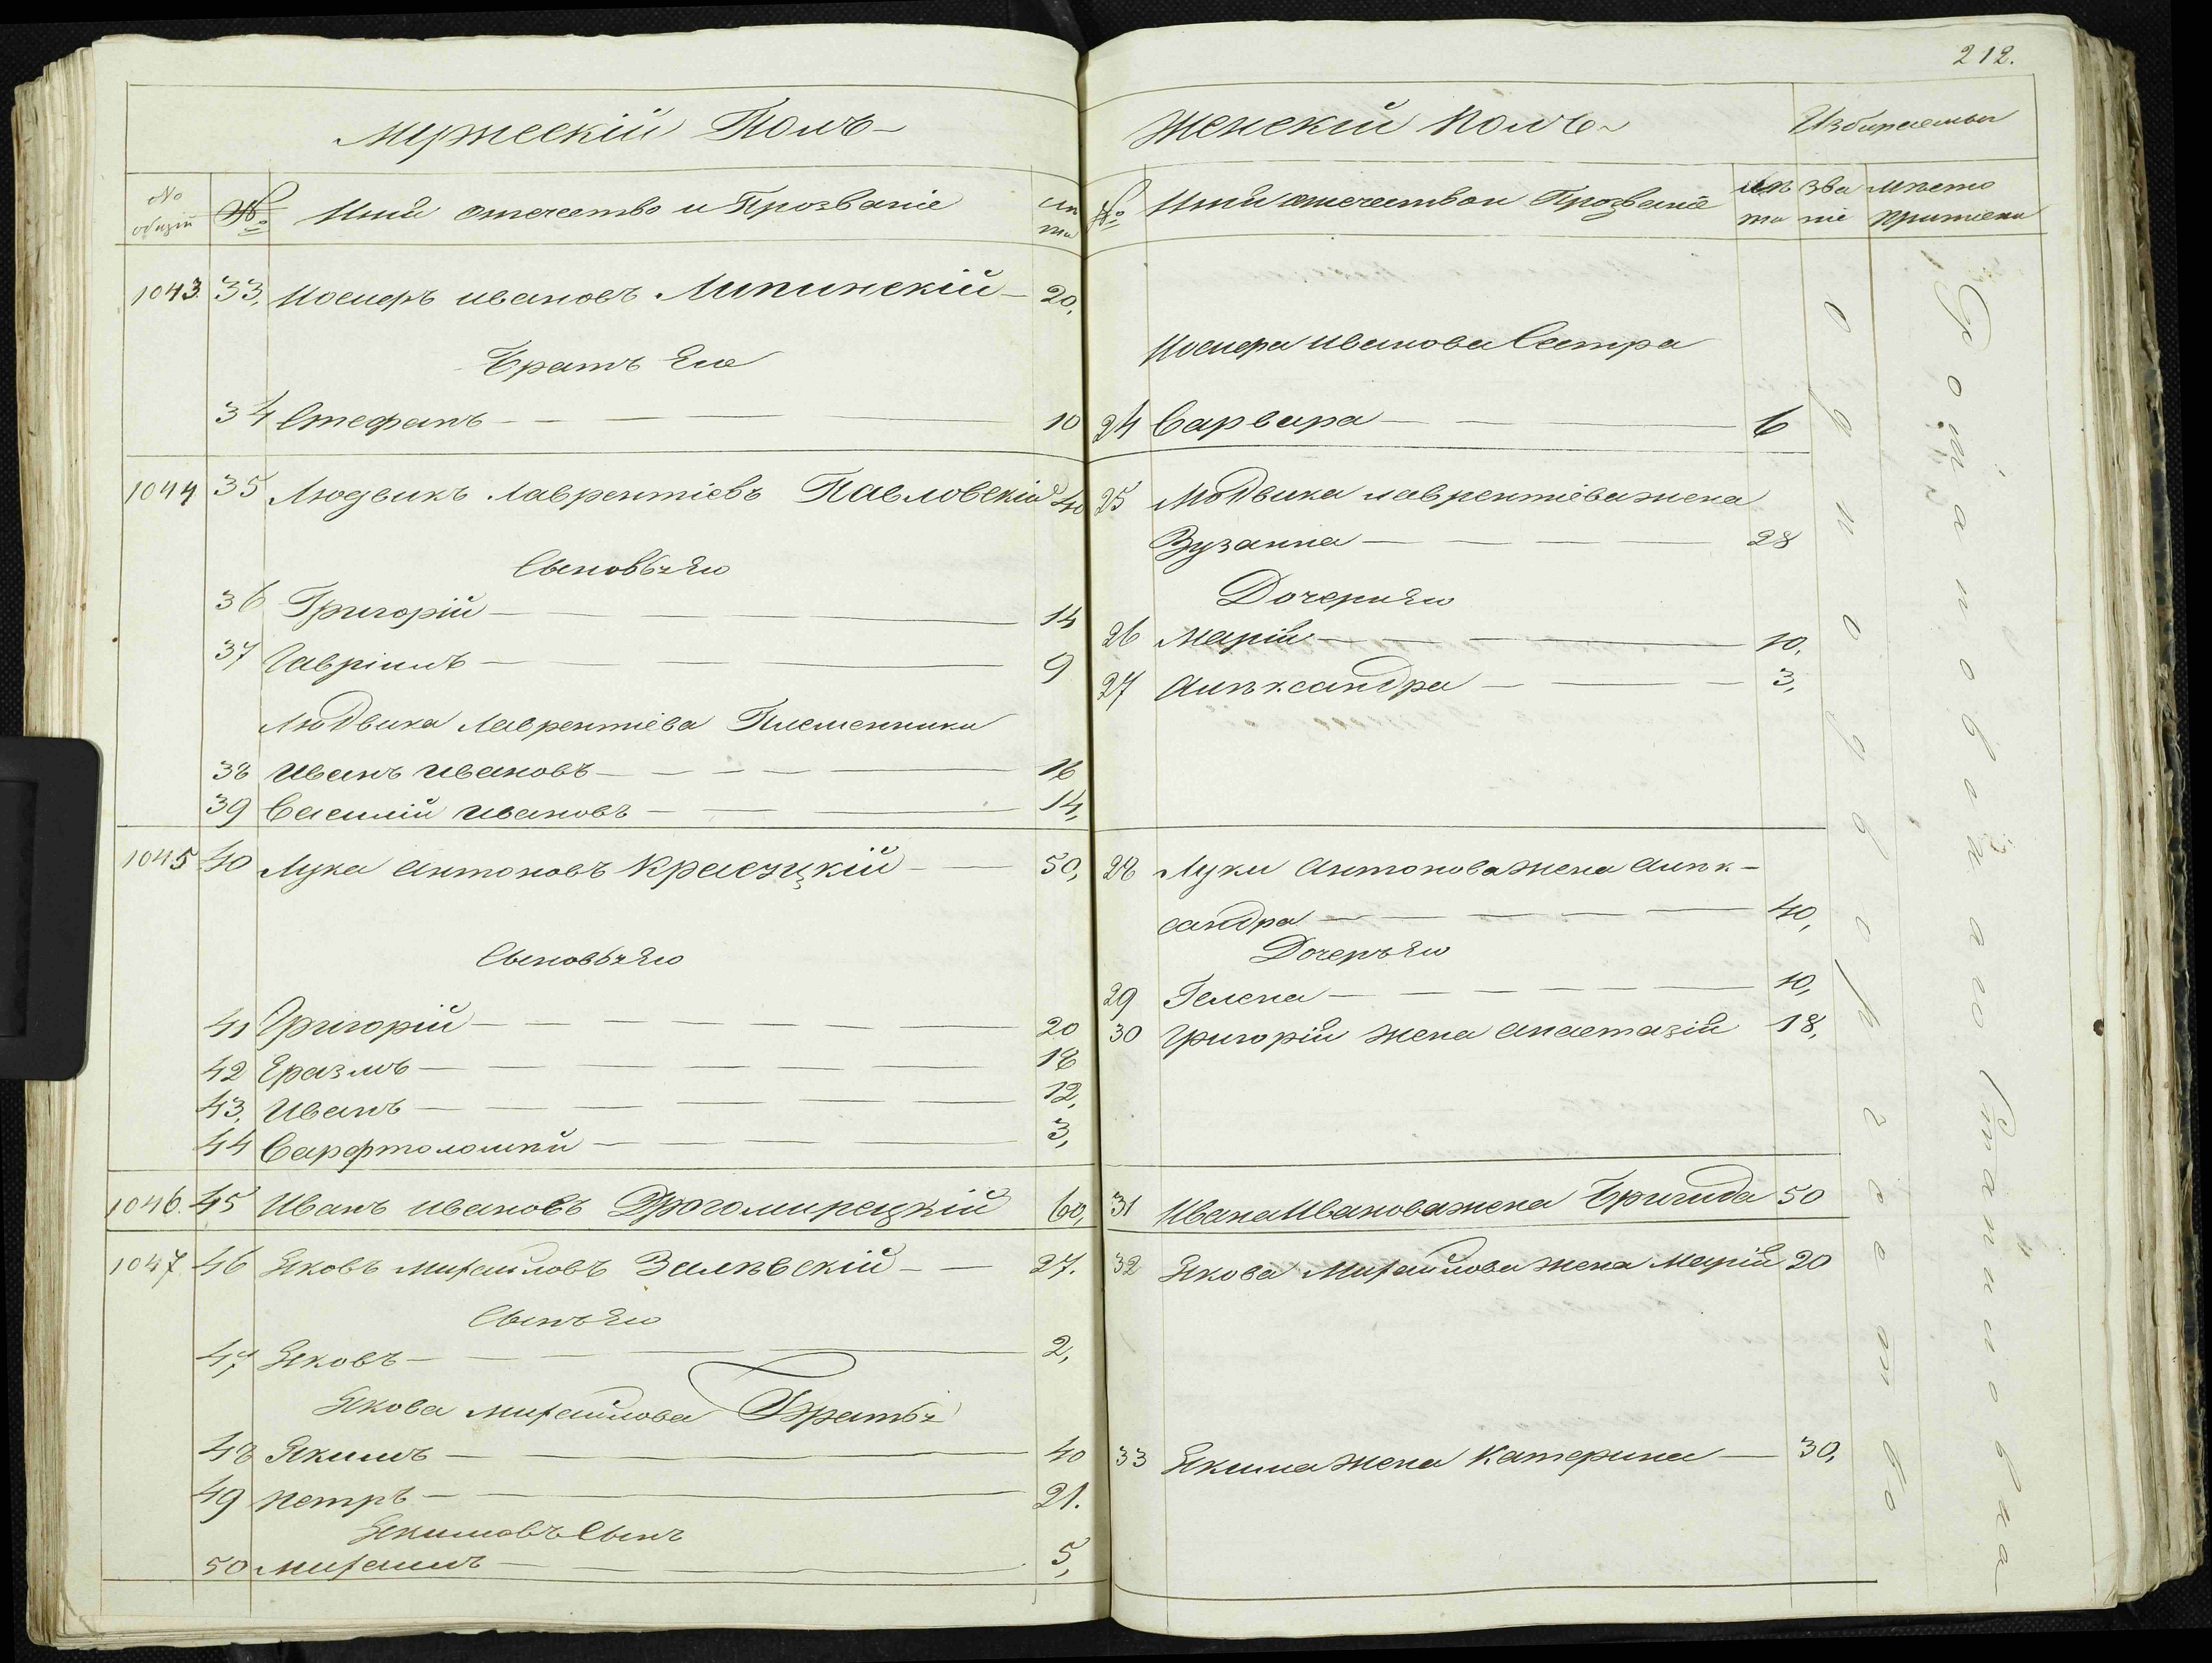 212.
Мужескій Полъ
No общій
№
Имя отечество и Прозваніе
лѣта
1043. 33, Іосифъ Ивановъ Липинскій 20,
Братъ Его
34 Стефанъ 10
1044 35 Людвикъ Лаврентіевъ Павловскій 40
Сыновья Его
36 Григорій 14
37 Гавріилъ 9
Людвика Лаврентіева Племенники
38 Иванъ Ивановъ 16
39 Василій Ивановъ 14,
1045 40 Лука Антоновъ 50,
Сыновья Его
41 Григорій 20
42 Еразмъ 18
43, Иванъ 12,
44 Варфтоломѣй 3,
1046. 45 Иванъ Ивановъ Дрогомирецкій 60,
1047 46 Яковъ Михайловъ Залѣвскій 27.
Сынъ Его
47, Яковъ 2,
Якова Михайлова Братья
48 Якимъ 40
49 Петръ 21.
Якимовъ Сынъ
50 Михаилъ 5,
Женскій Полъ
Избираемы
№
Имя отечество и Прозваніе
лѣта
званіе
мѣсто
Іосифа Иванова Сестра
24 Варвара 6
25 Людвика Лаврентіева жена
Зузанна 28
Дочери Его
26 Марія 10,
27 Алѣксандра 3,
28 Луки Антонова жена Алѣк-
сандра 40,
Дочеръ Его
29 Гелена 10,
30 Григорій жена Анастазія 18,
31 Ивана Иванова жена Бригида 50
32 Якова Михайлова жена Марія 20
33 Якима жена Катерина 30,
Однодворчество